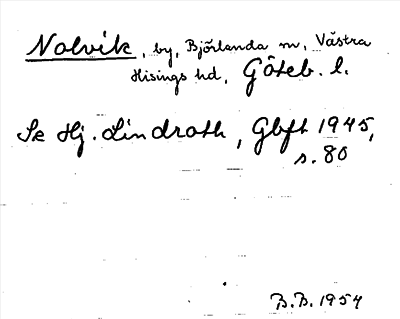 Nolvik, by, Björlanda sn, Västra
Hisings hd, Göteb. l.
Se Hj. Lindroth, Gbft 1945,
s. 80
B.B. 1954